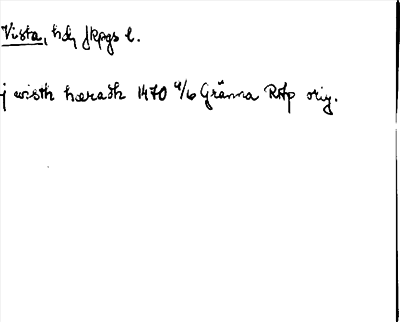 Vista, hd, Jkpgs l.
j wisth hæradh 1470 4/6 Gränna RAp orig.